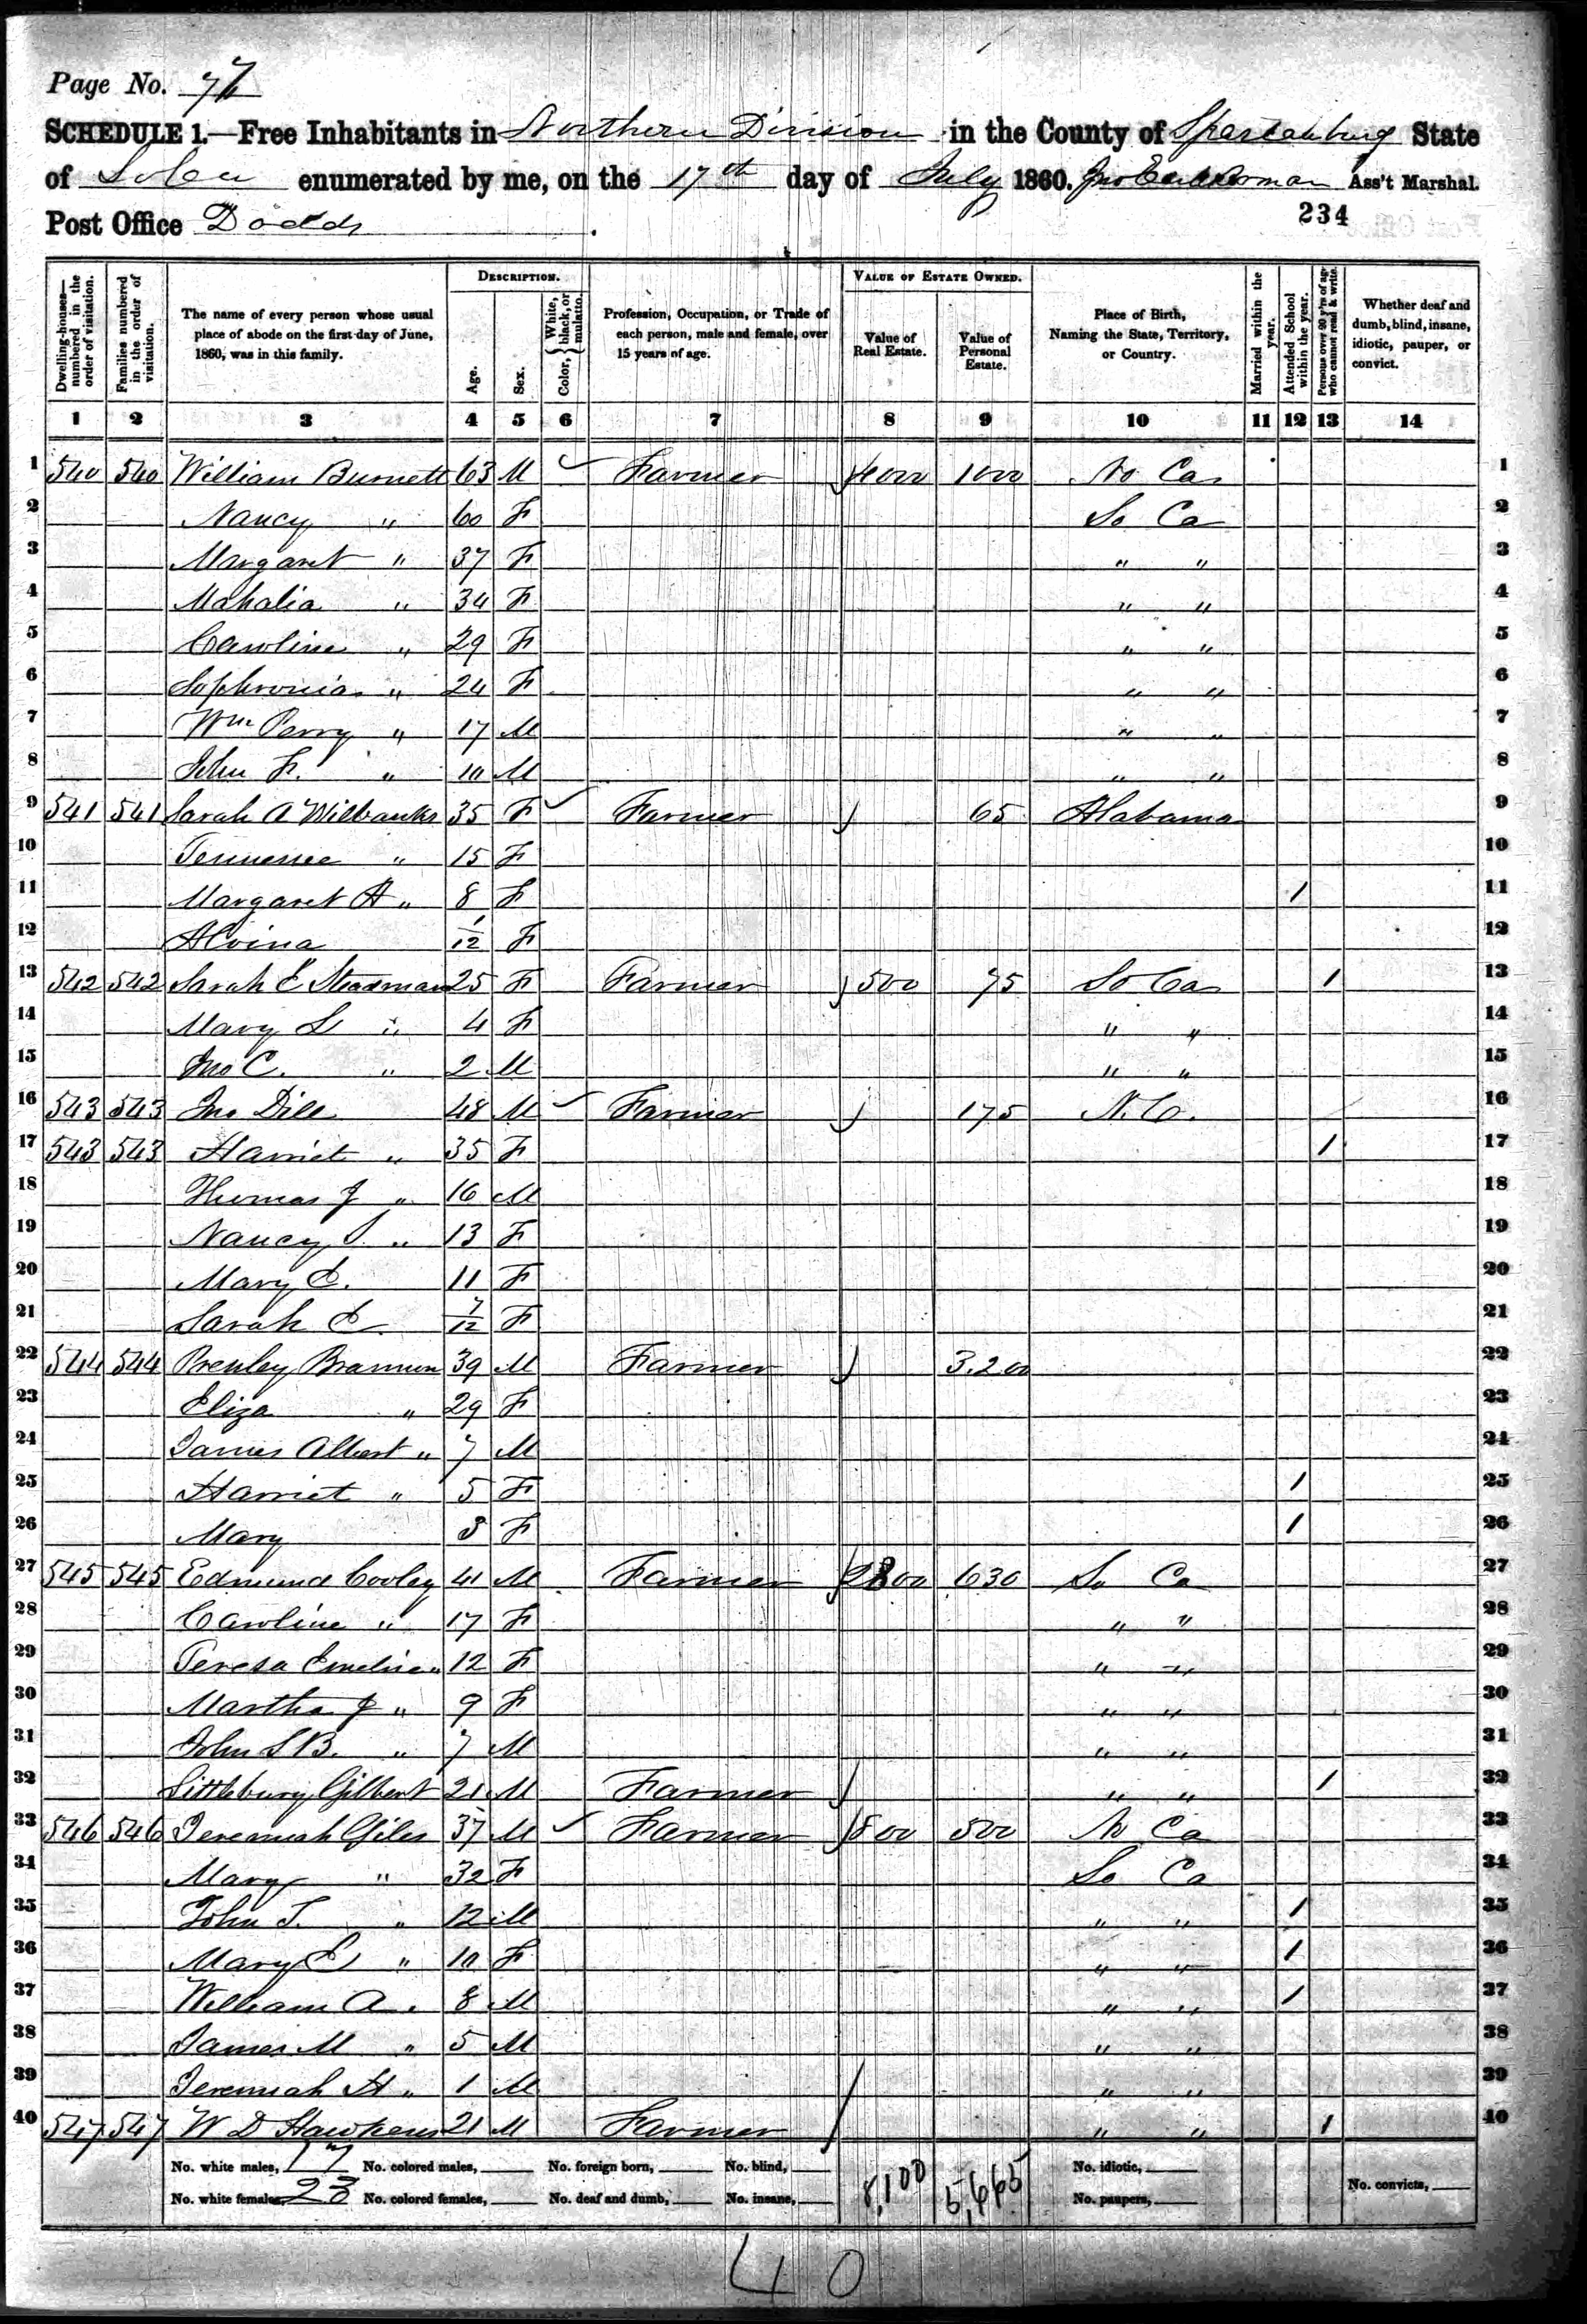 Page No. 77
SCHEDULE 1.—Free Inhabitants in Northern Division in the County of Spartanburg State
of So Ca enumerated by me, on the 17th day of July 1860. Ass't Marshal.
234
Post Office Dodds
Dwelling-houses—numbered in the order of visitation.
Families numbered in the order of visitation.
The name of every person whose usual place of abode on the first day of June, 1860, was in this family.
DESCRIPTION.
Age.
Sex.
Color, { White, black, or mulatto.
Profession, Occupation, or Trade of each person, male and female, over 15 years of age.
VALUE OF ESTATE OWNED.
Value of Real Estate.
Value of Personal Estate.
Place of Birth, Naming the State, Territory, or Country.
Married within the year.
Attended School within the year.
Persons over 20 y'rs of age who cannot read & write.
Whether deaf and dumb, blind, insane, idiotic, pauper, or convict.
1 2 3 4 5 6 7 8 9 10 11 12 13 14
1 540 540 William Burnett 63 M Farmer 4000 1000 No Ca 1
2 Nancy " 60 F So Ca 2
3 Margaret " 37 F " " 3
4 Mahalia " 34 F " " 4
5 Caroline " 29 F " " 5
6 Sophronia " 24 F " " 6
7 Wm Perry " 17 M " " 7
8 John F. " 10 M " " 8
9 541 541 Sarah A Wilbanks 35 F Farmer 65 Alabama 9
10 Tennessee " 15 F 10
11 Margaret A " 8 F / 11
12 Alvina 1/12 F 12
13 542 542 Sarah E Steadman 25 F Farmer 500 75 So Ca / 13
14 Mary L " 4 F " " 14
15 Jno C. " 2 M " " 15
16 543 543 Jno Dill 48 M Farmer 175 N. C. 16
17 543 543 Harriet " 35 F / 17
18 Thomas J " 16 M 18
19 Nancy S. " 13 F 19
20 Mary E. 11 F 20
21 Sarah E 7/12 F 21
22 544 544 Brannon 39 M Farmer 3.200 22
23 Eliza " 29 F 23
24 James Albert " 7 M 24
25 Harriet " 5 F / 25
26 Mary 3 F / 26
27 545 545 Edmund Cooley 41 M Farmer 2800 630 So Ca 27
28 Caroline " 17 F " " 28
29 Teresa Emeline " 12 F " " 29
30 Martha J " 9 F " " 30
31 John S B. " 7 M " " 31
32 Littlebury Gilbert 21 M Farmer " " / 32
33 546 546 Jeremiah Giles 37 M Farmer 800 500 No Ca 33
34 Mary " 32 F So Ca 34
35 John T. " 12 M " " / 35
36 Mary E " 10 F " " / 36
37 William A. 8 M " " / 37
38 James M " 5 M " " 38
39 Jeremiah H " 1 M " " 39
40 547 547 W D Hawkens 21 M Farmer " " / 40
No. white males, 17 No. colored males, No. foreign born, No. blind, 8,100 5,665 No. idiotic,
No. white females, 23 No. colored females, No. deaf and dumb, No. insane, No. paupers, No. convicts,
40